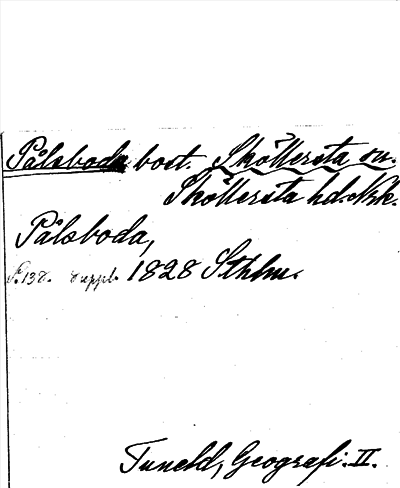 Pålsboda bost. Sköllersta sn.
Sköllersta hd. Nrk.
Pålsboda,
S. 138. suppl. 1828 Sthlm.
Tuneld, Geografi. II.